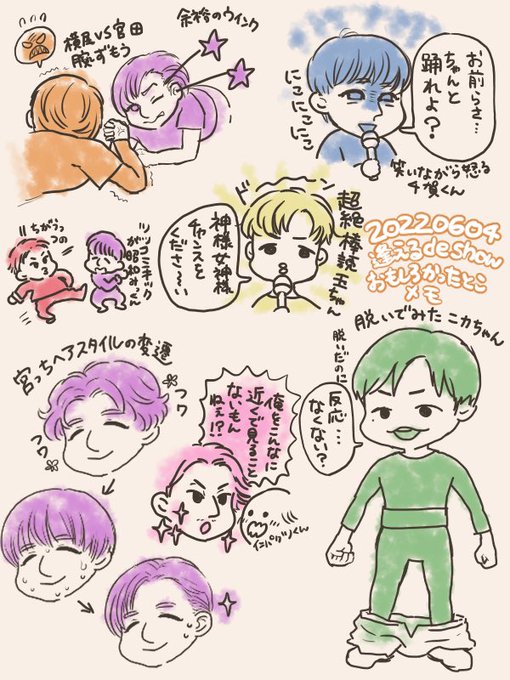 余裕のウィンク
横尾VS宮田
腕ずもう
お前らさ…
ちゃんと
踊れよ?
にこにこにこ
笑いながら怒る
千賀くん
ちがうっつの
ツッコミキック
が昭和みっくん
神様女神様
チャンスを
くださ〜い
超絶棒辣玉ちゃん
20220604
逢えるdeshow
おもしろかったとこ
メモ
脱いでみたニカちゃん
脱いだのに
反応…
なくない?
宮っちヘアスタイルの変遷
フワ
フワ
俺をこんなに
近くで見ること
ないもん
ねぇ!?
インパグリくん